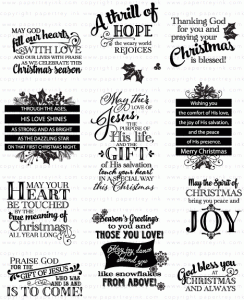 MAY GOD
fill our hearts
WITH LOVE
AND OUR LIVES WITH PRAISE
AS WE CELEBRATE THIS
Christmas season
A thrill of
HOPE
the weary world
REJOICES
Thanking God
for you and
praying your
Christmas
is blessed!
THROUGH THE AGES,
HIS LOVE SHINES
AS STRONG AND AS BRIGHT
AS THE DAZZLING STAR
ON THAT FIRST CHRISTMAS NIGHT.
May the
LOVE of
Jesus,
THE
PURPOSE
OF
His life,
AND THE
GIFT
Of His salvation
touch your heart
IN A SPECIAL WAY
this Christmas
Wishing you
the comfort of His love,
the joy of His salvation,
and the peace
of His presence.
Merry Christmas
MAY YOUR
HEART
BE TOUCHED
BY the
true meaning of
Christmas
ALL YEAR LONG
Season's Greetings
to you and
THOSE YOU LOVE!
May joy
dance
about
you
like snowflakes
FROM ABOVE!
May the Spirit of
CHRISTMAS
bring you peace and
JOY
PRAISE GOD
FOR the
GIFT OF JESUS
WHO WAS
AND IS AND
IS TO COME!
God bless you
at
CHRISTMAS
and always